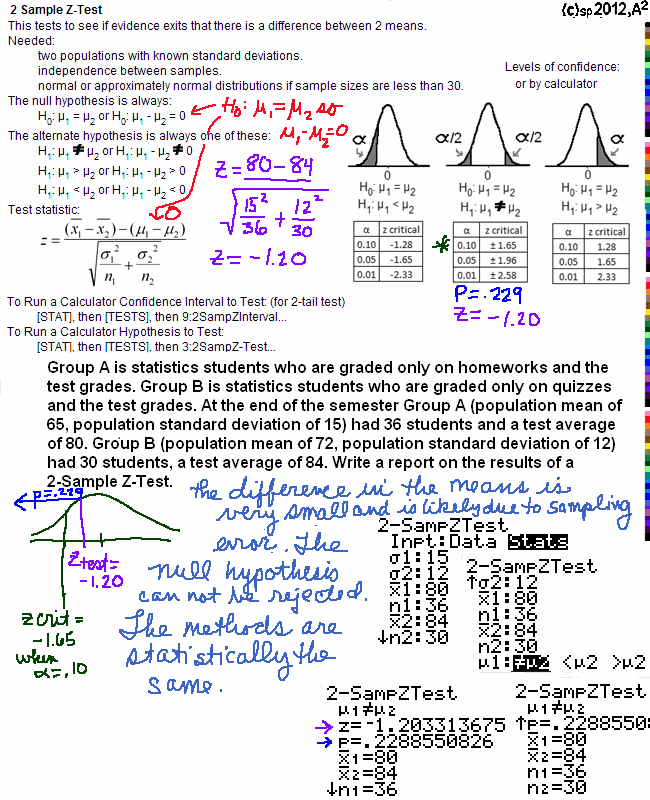 2 Sample Z-Test
(c)sp2012,A²
This tests to see if evidence exits that there is a difference between 2 means.
Needed:
two populations with known standard deviations.
independence between samples.
normal or approximately normal distributions if sample sizes are less than 30.
Levels of confidence:
or by calculator
The null hypothesis is always:
H₀: μ₁ = μ₂ or H₀: μ₁ - μ₂ = 0
H₀: μ₁ = μ₂ so
μ₁ - μ₂ = 0
The alternate hypothesis is always one of these:
H₁: μ₁ ≠ μ₂ or H₁: μ₁ - μ₂ ≠ 0
H₁: μ₁ > μ₂ or H₁: μ₁ - μ₂ > 0
H₁: μ₁ < μ₂ or H₁: μ₁ - μ₂ < 0
Test statistic:
0
z = ((x̄₁ - x̄₂) - (μ₁ - μ₂)) / √(σ₁²/n₁ + σ₂²/n₂)
Z = 80 - 84
√(15²/36 + 12²/30)
Z = -1.20
α
0
H₀: μ₁ = μ₂
H₁: μ₁ < μ₂
α z critical
0.10 -1.28
0.05 -1.65
0.01 -2.33
α/2 α/2
0
H₀: μ₁ = μ₂
H₁: μ₁ ≠ μ₂
α z critical
* 0.10 ± 1.65
0.05 ± 1.96
0.01 ± 2.58
P = .229
Z = -1.20
α
0
H₀: μ₁ = μ₂
H₁: μ₁ > μ₂
α z critical
0.10 1.28
0.05 1.65
0.01 2.33
To Run a Calculator Confidence Interval to Test: (for 2-tail test)
[STAT], then [TESTS], then 9:2SampZInterval...
To Run a Calculator Hypothesis to Test:
[STAT], then [TESTS], then 3:2SampZ-Test...
Group A is statistics students who are graded only on homeworks and the
test grades. Group B is statistics students who are graded only on quizzes
and the test grades. At the end of the semester Group A (population mean of
65, population standard deviation of 15) had 36 students and a test average
of 80. Group B (population mean of 72, population standard deviation of 12)
had 30 students, a test average of 84. Write a report on the results of a
2-Sample Z-Test.
P=.229
Z test =
-1.20
z crit =
-1.65
when
α=.10
The difference in the means is
very small and is likely due to sampling
error. The
null hypothesis
can not be rejected.
The methods are
statistically the
same.
2-SampZTest
Inpt:Data Stats
σ1:15
σ2:12
x̄1:80
n1:36
x̄2:84
↓n2:30
2-SampZTest
↑σ2:12
x̄1:80
n1:36
x̄2:84
n2:30
μ1:≠μ2 <μ2 >μ2
2-SampZTest
μ1≠μ2
z=-1.203313675
p=.2288550826
x̄1=80
x̄2=84
↓n1=36
2-SampZTest
μ1≠μ2
↑p=.2288550
x̄1=80
x̄2=84
n1=36
n2=30